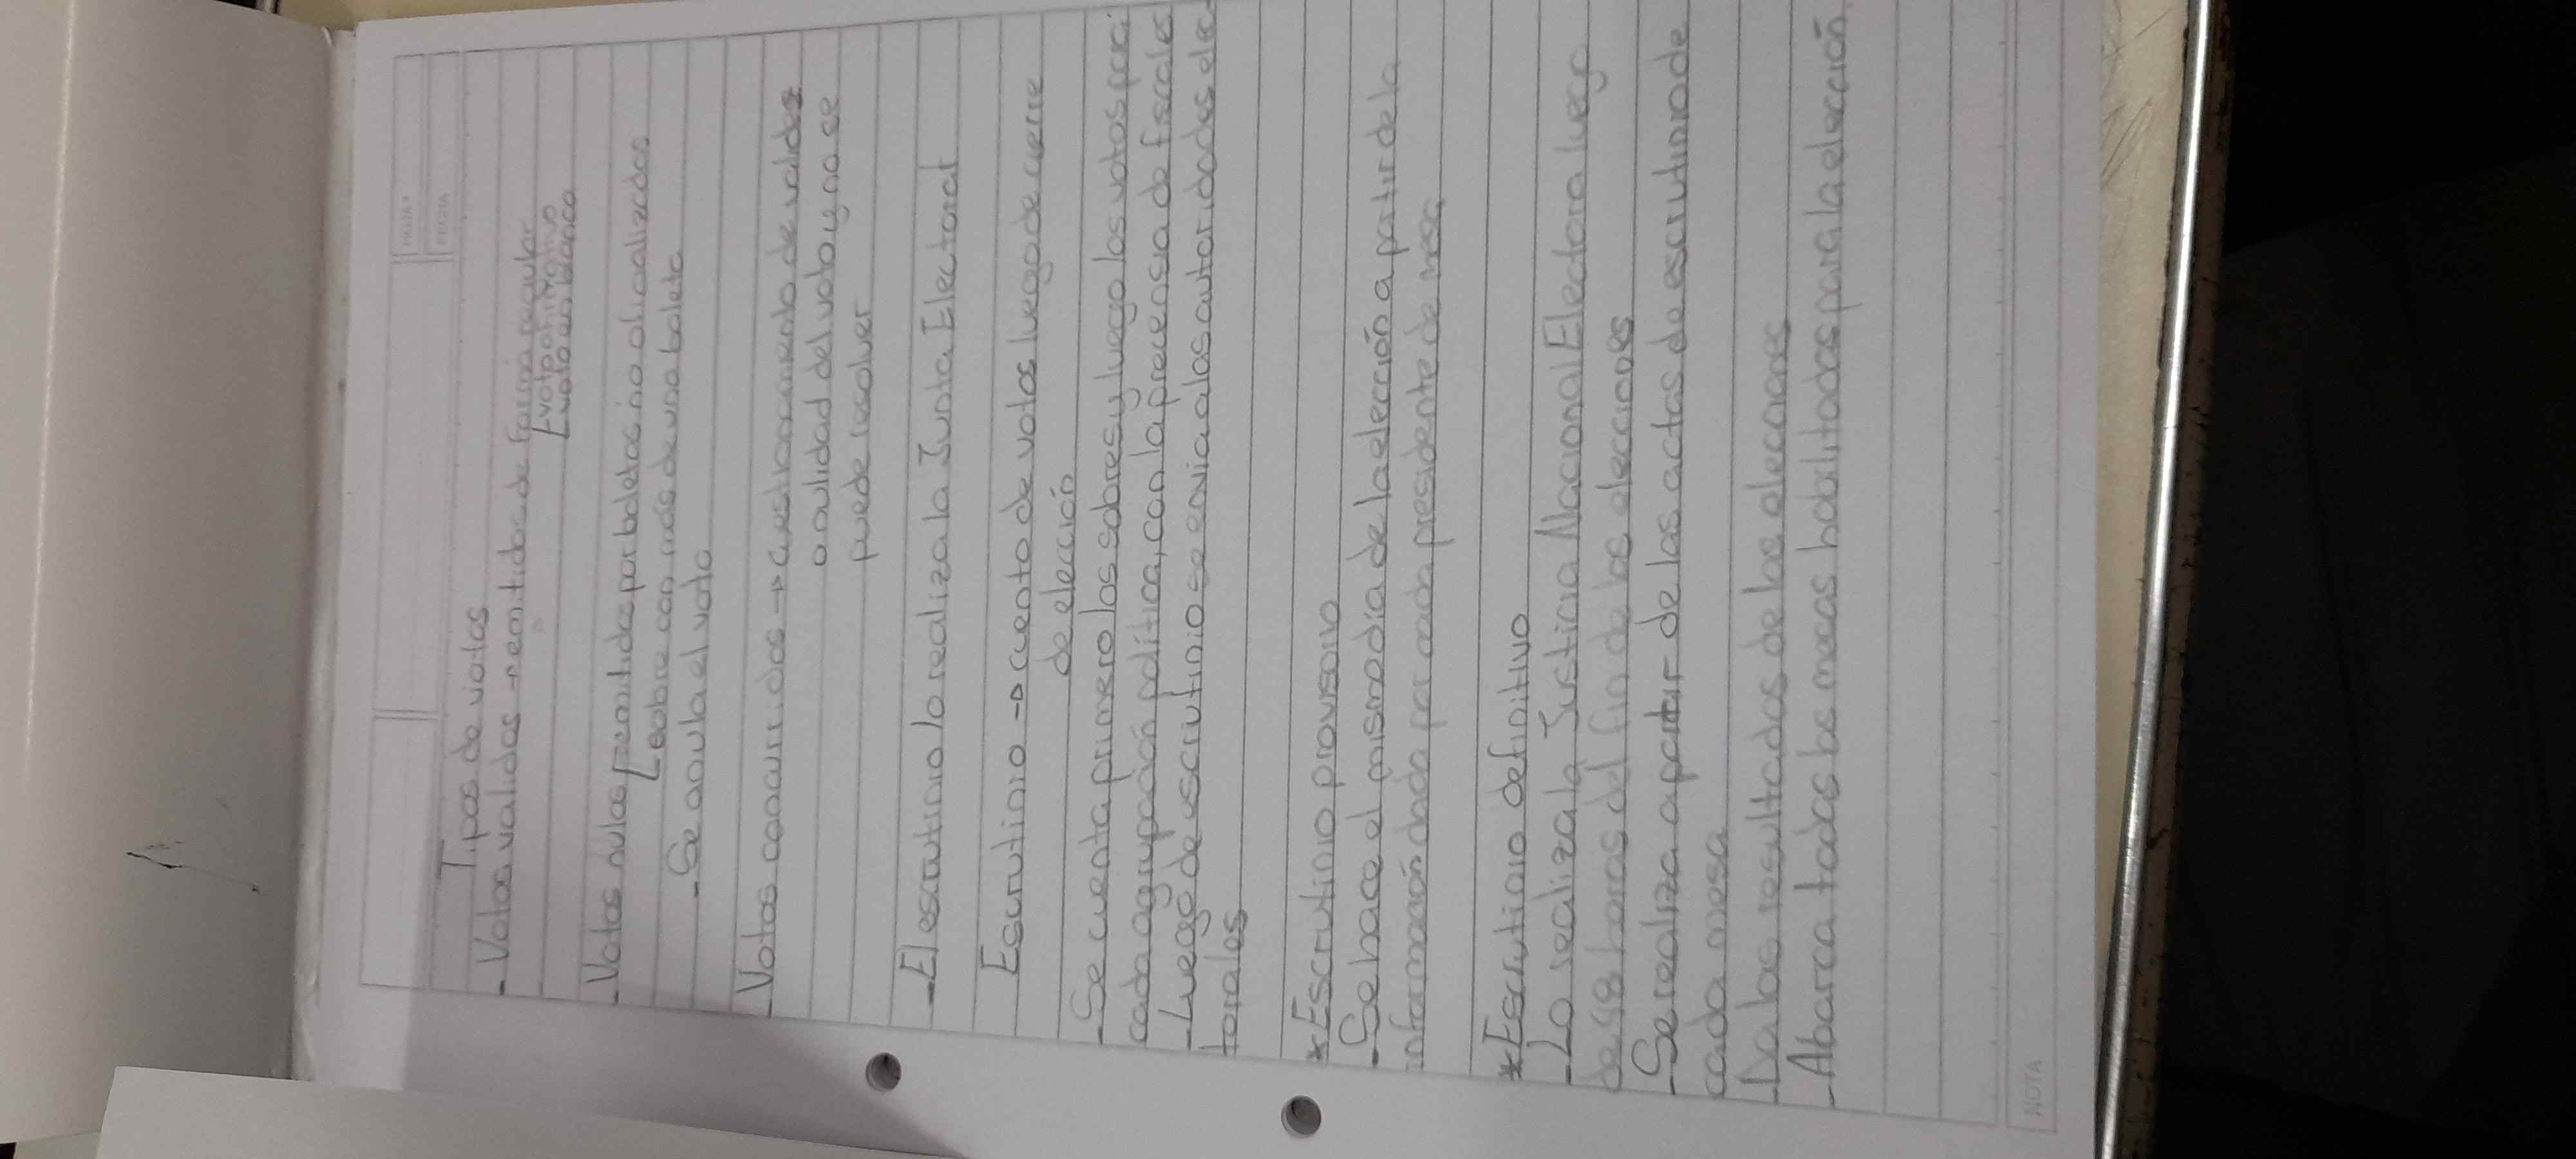 HOJA Nº
FECHA
Tipos de votos
- Votos validos → remitidos de forma regular
[voto afirmativo
[voto en blanco
- Votos nulos [remitidos por boletas no oficializadas
[sobre con más de una boleta
- Se anula el voto
- Votos concurridos → cuestionamiento de validez
o nulidad del voto y no se
puede resolver
- El escrutinio lo realiza la Junta Electoral
Escrutinio → cuento de votos luego de cierre
de elección
- Se cuenta primero los sobres y luego los votos por
cada agrupación política, con la precensia de fiscales
- Luego de escrutinio se envia a las autoridades elec
torales
* Escrutinio provisorio
- Se hace el mismo día de la elección a partir de la
información dada por cada presidente de mesa
* Escrutinio definitivo
- Lo realiza la Justicia Nacional Electora luego
de 48 horas del fin de las elecciones
- Se realiza a partir de las actas de escrutinio de
cada mesa
- Da los resultados de las elecciones
- Abarca todas las mesas habilitadas para la elección
NOTA